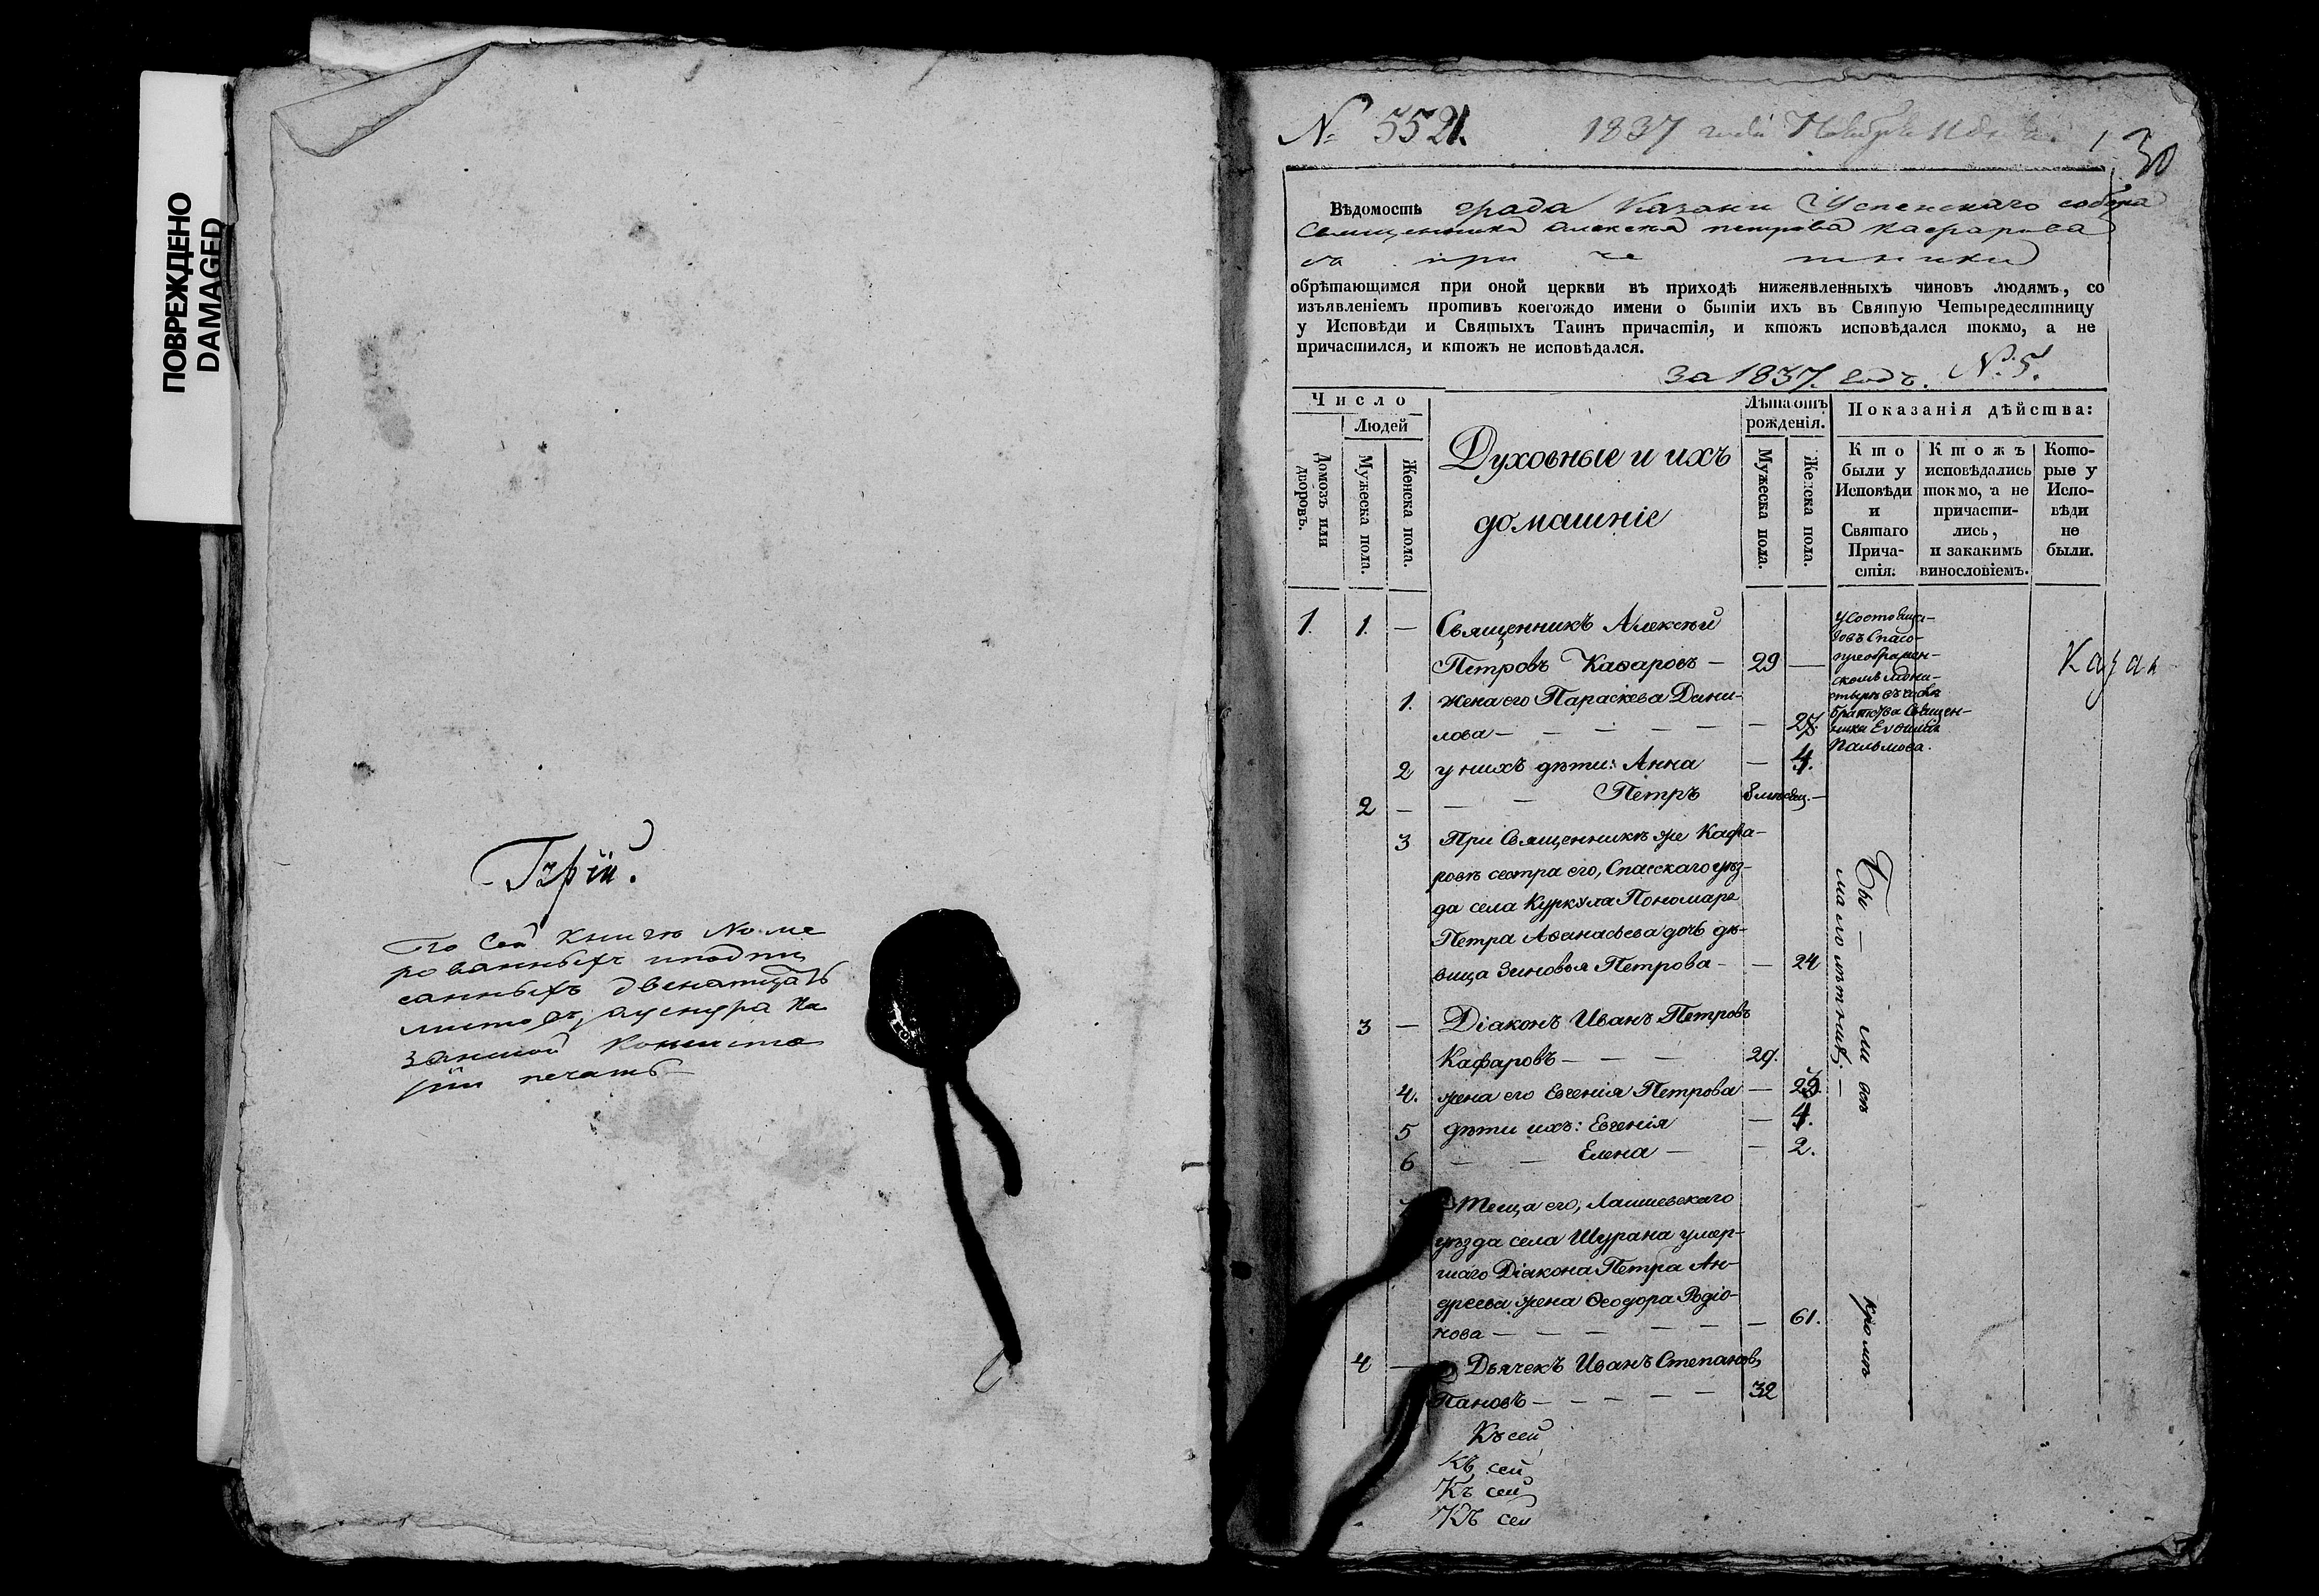 ПОВРЕЖДЕНО
DAMAGED
По Сей книге Номе
рованныхъ и подпи
санныхъ двенатцать
листовъ, а у снура Ка
занской Консисто
рiи печать
№ 5521. 1837 года Ноября
1 30
Вѣдомость града Казани Успенскаго собора
Священника Алексея петрова Кафарова
съ при че тники
обрѣтающимся при оной церкви въ приходѣ нижеявленныхъ чиновъ людямъ, со
изъявленіемъ противъ коегождо имени о бытіи ихъ въ Святую Четыредесятницу
у Исповѣди и Святыхъ Таинъ причастія, и ктожъ исповѣдался токмо, а не
причастился, и ктожъ не исповѣдался.
за 1837. годъ. №. 5.
Число
Людей
Домовъ или дворовъ.
Мужеска пола.
Женска пола.
Духовные и ихъ
домашніе
Лѣта отъ
рожденія.
Мужеска пола.
Женска пола.
Показанія дѣйства:
Кто
были у
Исповѣди
и
Святаго
Прича-
стія.
Ктожъ
исповѣдались
токмо, а не
причасти-
лись,
и закакимъ
винословіемъ.
Кото-
рые у
Испо-
вѣди
не
были.
1. 1. — Священникъ Алексѣй
Петровъ Каѳаровъ — 29 —
1. жена его Параскева Дани-
лова — — — — — — 27.
2 у нихъ дѣти: Анна — 4.
2 — — — Петръ 8 мѣсяц. —
Спасо-
преображен-
скомъ мона-
стырѣ
Священ-
ника Евѳимія
Пальмова.
Казан
3 При Священникѣ же Кафа-
ровѣ сестра его, Спасскаго уѣз-
да села Куркуля Пономаря
Петра Аѳанасьева дочь дѣ-
вица Зиновья Петрова — — 24
3 — Діаконъ Иванъ Петровъ
Кафаровъ — — — 27.
4. жена его Евгенія Петрова — 25.
5 дѣти ихъ: Евгенія — 4.
6 — — Елена — — 2.
Теща его, Лаишевскаго
уѣзда села Шурана умер-
шаго Діакона Петра Ан-
дреева жена Ѳеодора Родіо-
нова — — — — — — 61.
4 — Дьячекъ Иванъ Степановъ
Пановъ — — — — 32
Бы — ли всѣ кромѣ
малолѣтнихъ. —
Къ сей
Къ сей
Къ сей
Къ сей